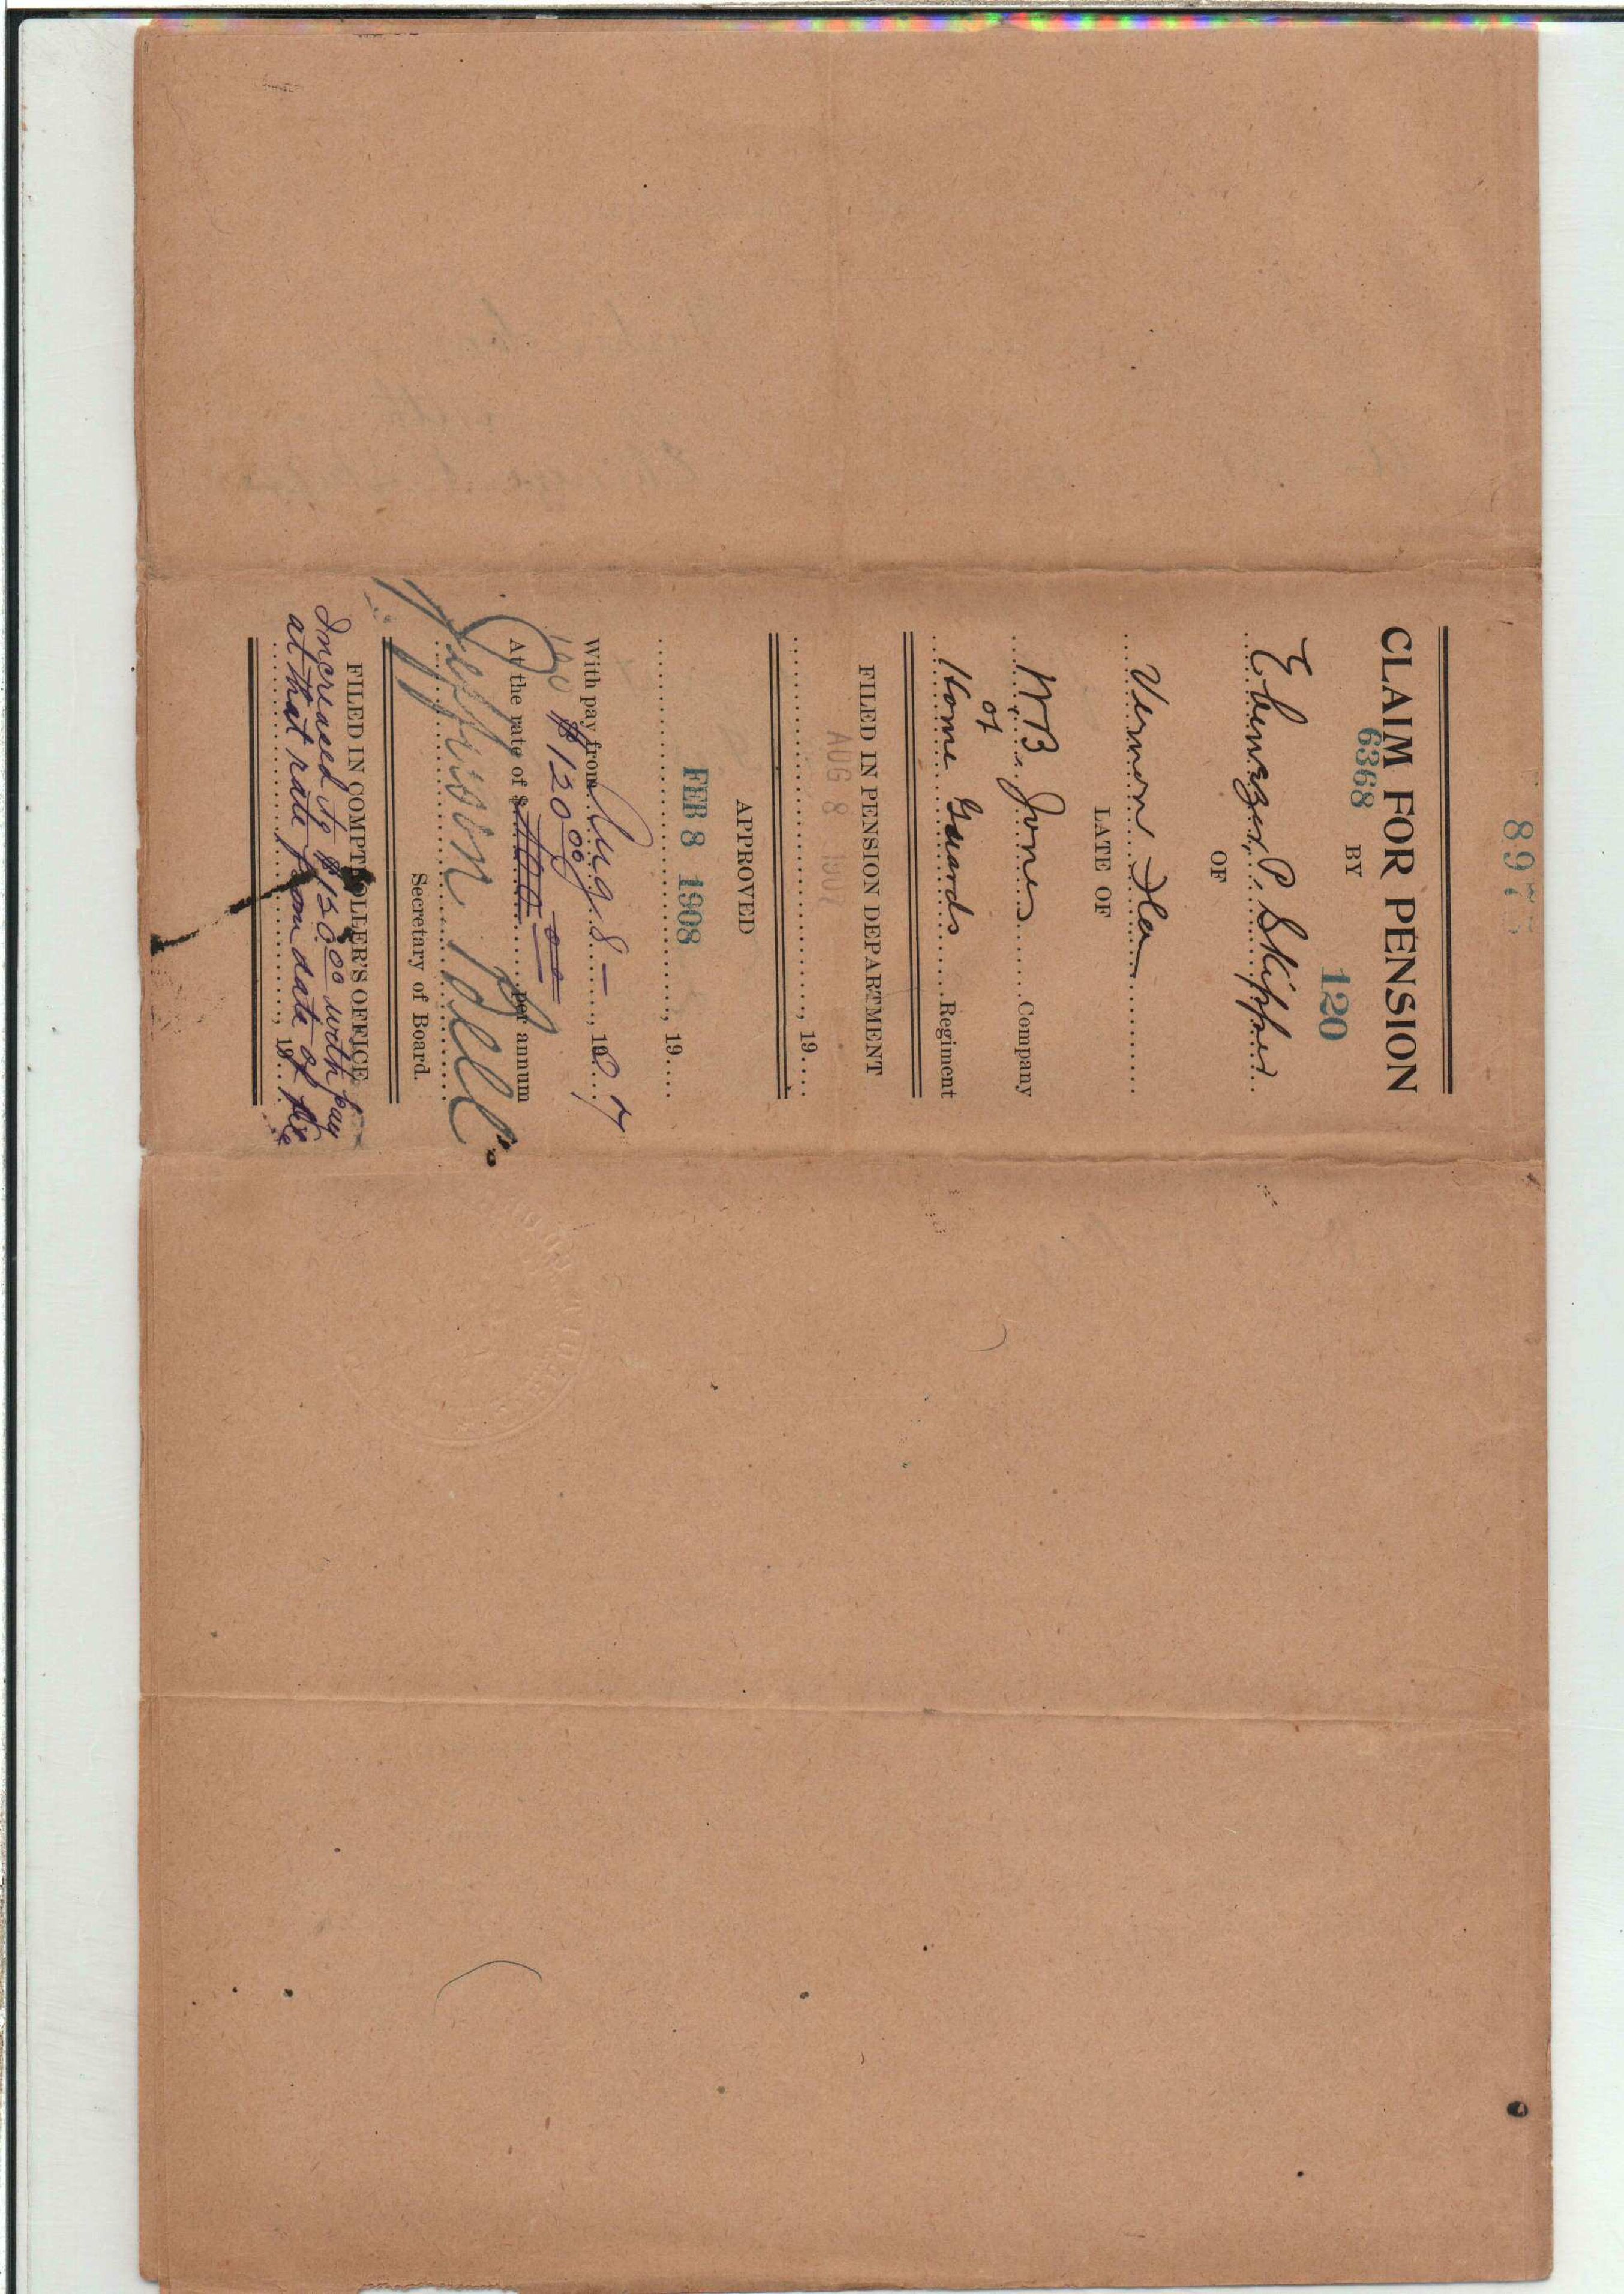 897
CLAIM FOR PENSION
6368 BY 120
Ebenezer P. Skipper
OF
Vernon Fla
LATE OF
W B Jones Company
of
Home Guards Regiment
FILED IN PENSION DEPARTMENT
AUG 8 1907
, 19
APPROVED
FEB 8 1908
, 19
With pay from Aug 8 - , 190 7
$120 00
At the rate of $ per annum
Jefferson Bell
Secretary of Board.
FILED IN COMPTROLLER'S OFFICE
Increased to $150.00 with pay
at that rate from date of
, 19